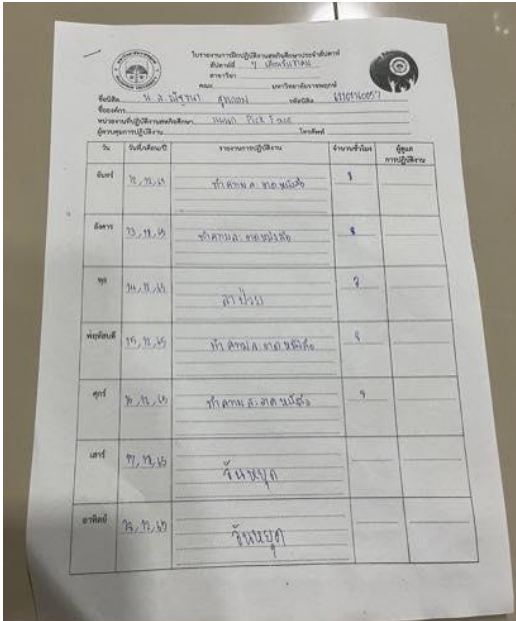 ใบรายงานการฝึกปฏิบัติงานสหกิจศึกษาประจำสัปดาห์
สัปดาห์ที่
สาขาวิชา
คณะ มหาวิทยาลัยราชพฤกษ์
ชื่อนิสิต น.ส. รหัสนิสิต
ชื่อองค์กร
หน่วยงานที่ปฏิบัติงานสหกิจศึกษา แผนก Pick Face
ผู้ควบคุมการปฏิบัติงาน โทรศัพท์
วัน วันที่/เดือน/ปี รายงานการปฏิบัติงาน จำนวนชั่วโมง ผู้ดูแลการปฏิบัติงาน
จันทร์ 12, 12, 65 ทำความสะอาดหนังสือ 8
อังคาร 13, 12, 65 ทำความสะอาดหนังสือ 8
พุธ 14, 12, 65 ลาป่วย
พฤหัสบดี 15, 12, 65 ทำความสะอาดหนังสือ
ศุกร์ 16, 12, 65 ทำความสะอาดหนังสือ
เสาร์ 17, 12, 65 วันหยุด
อาทิตย์ 18, 12, 65 วันหยุด